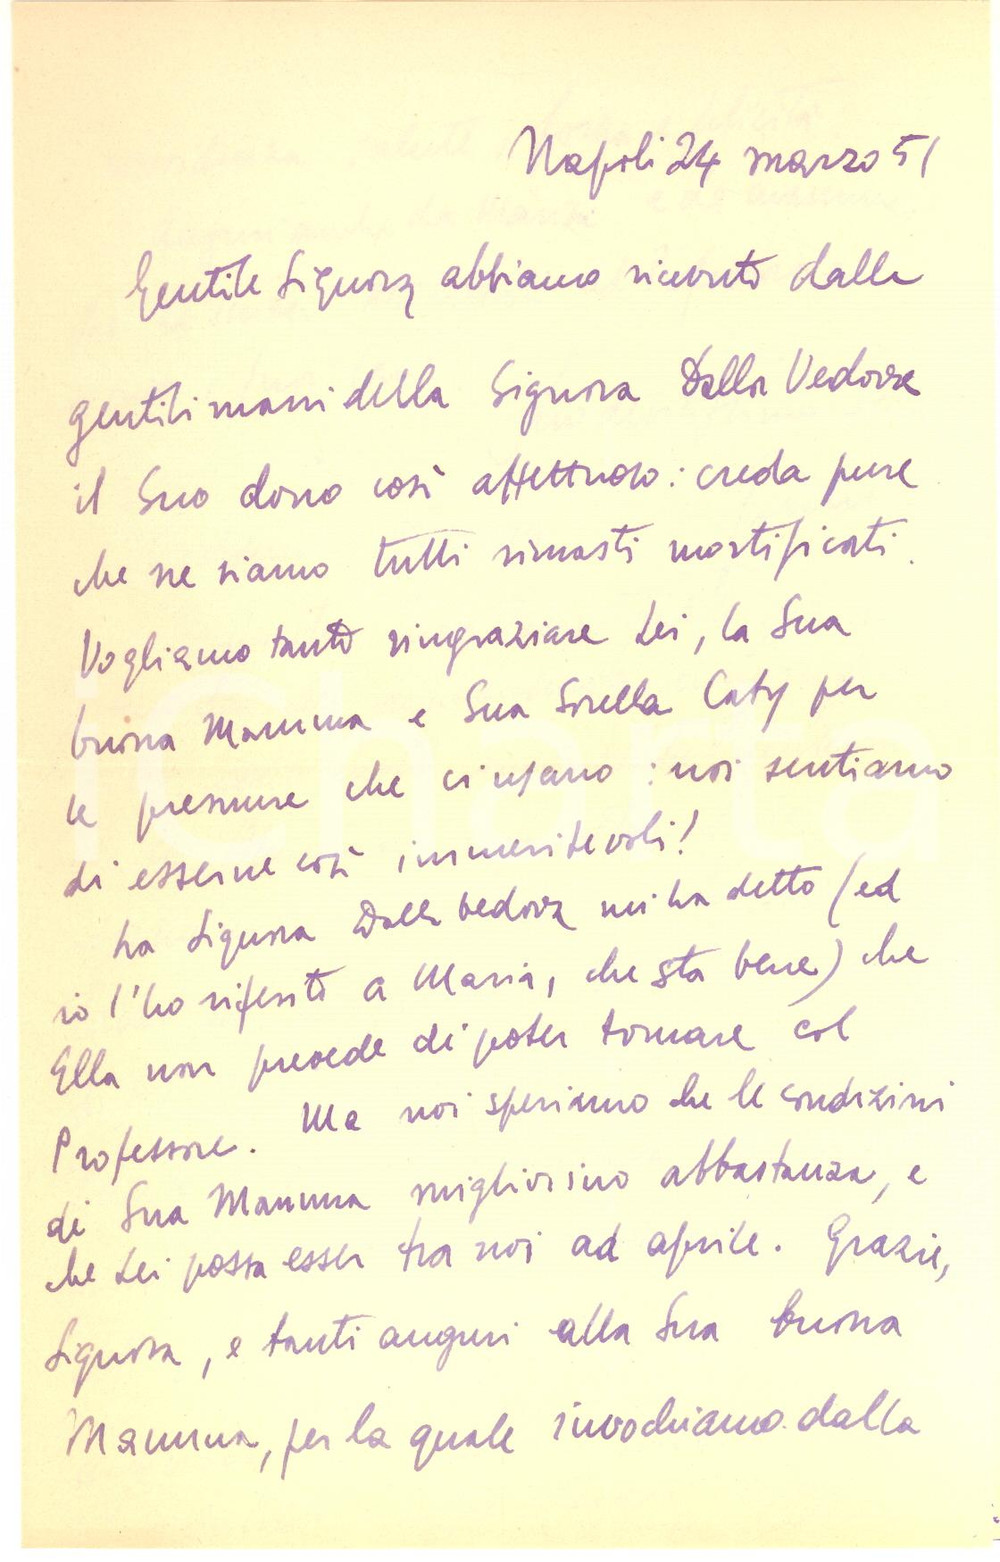 Napoli 24 marzo 51
Gentile Signora abbiamo ricevuto dalle
gentili mani della Signora Dalla Vedova
il Suo dono così affettuoso: creda pure
che ne siamo tutti rimasti mortificati.
Vogliamo tanto ringraziare Lei, la Sua
buona Mamma e Sua Sorella Caty per
le premure che ci usano: noi sentiamo
di esserne così immeritevoli!
La Signora Dalla Vedova mi ha detto (ed
io l'ho riferito a Maria, che sta bene) che
Ella non prevede di poter tornare col
Professore. Ma noi speriamo che le condizioni
di Sua Mamma migliorino abbastanza, e
che Lei possa esser tra noi ad aprile. Grazie,
Signora, e tanti auguri alla Sua buona
Mamma, per la quale invochiamo dalla
iCharta